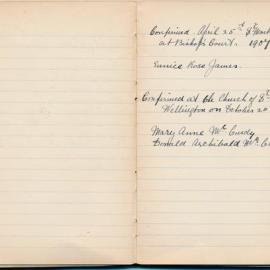 Confirmed April 25th St Mark
at Bishop's Court. 1907
Eunice Rose James.
Confirmed at the Church of St
Wellington on October 20
Mary Anne Mc Curdy
Donald Archibald Mc Cu